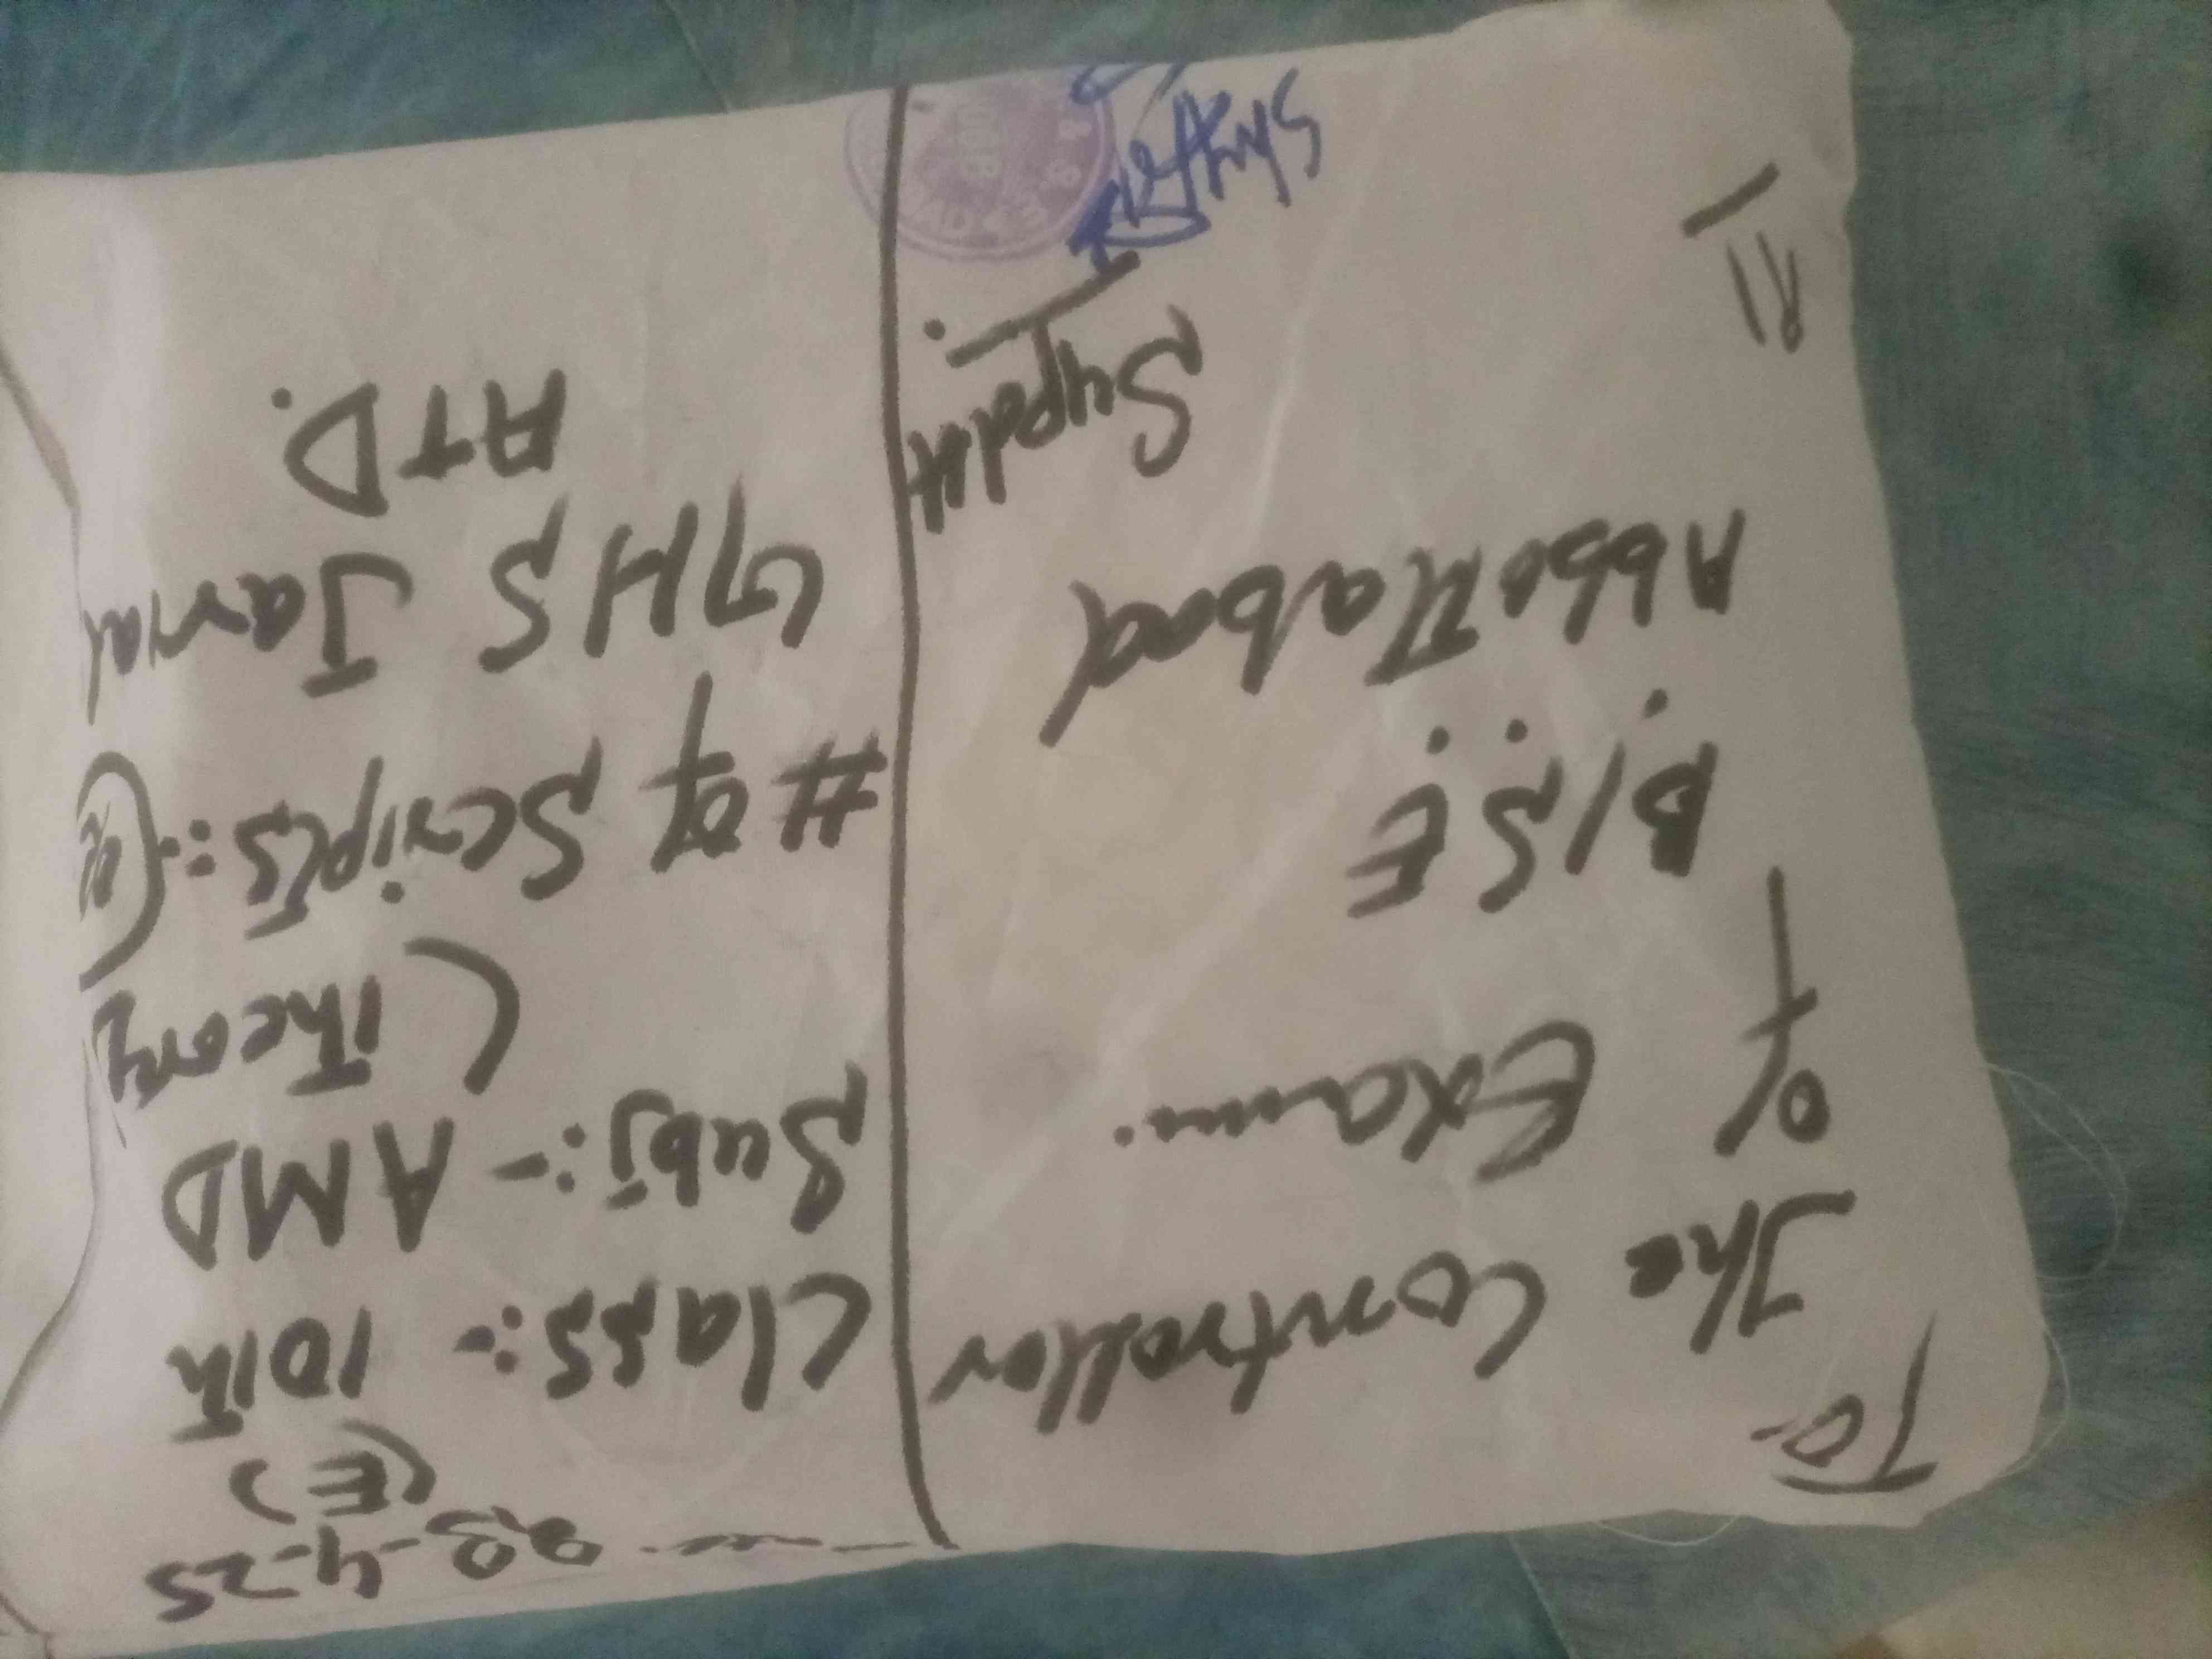 To-
The Controller
of Exam.
B.I.S.E.
Abbottabad
Supdtt
28-4-25
(E)
Class:- 10th
Subj:- AMD
(Theory
# of Scripts:-
GHS Jarral
ATD.